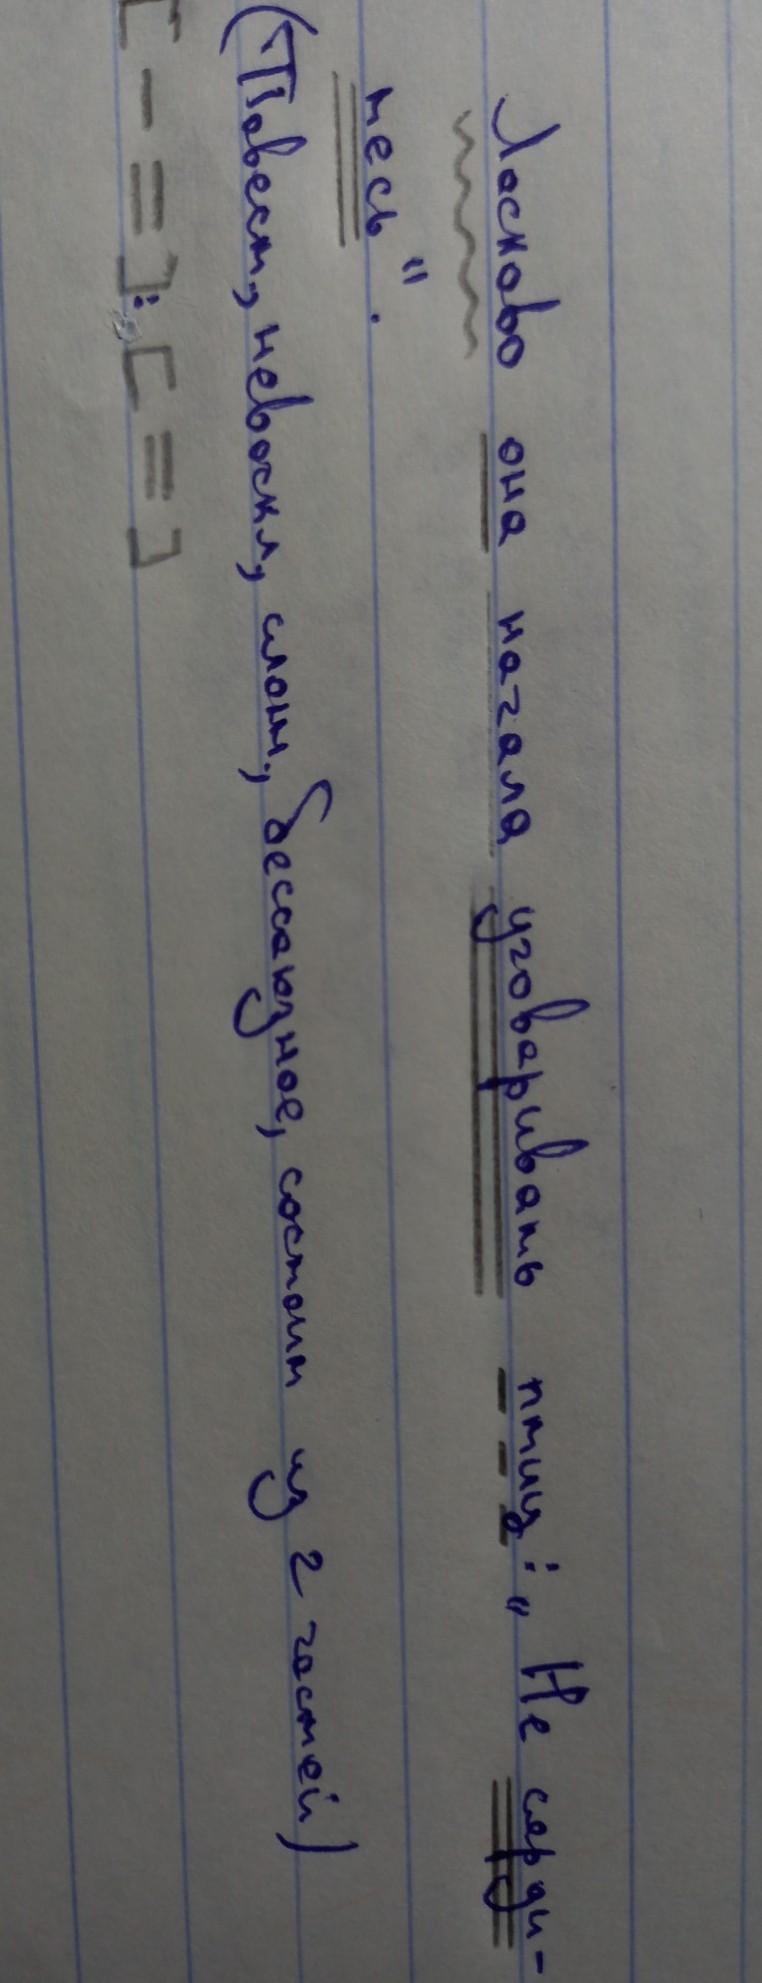 Ласково она начала уговаривать птиц: „Не серди-
тесь".
(Повест., невоскл., сложн., бессоюзное, состоит из 2 частей)
[ - = ]: [ = ]